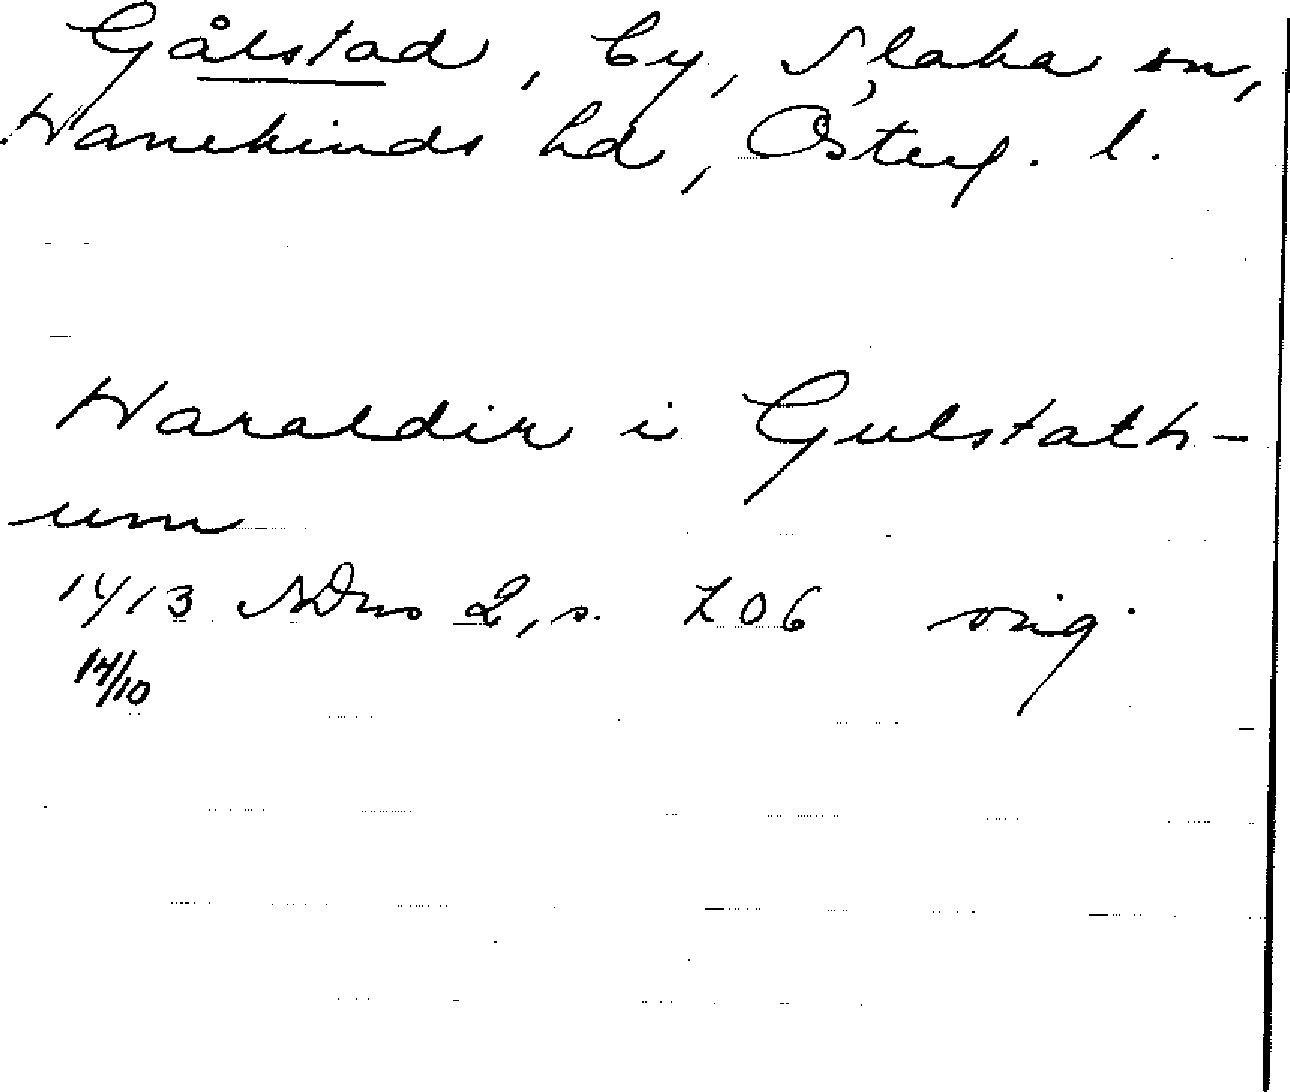 Gålstad, by, Slaka sn,
Hanekinds hd, Österg. l.
Haraldir i Gulstath-
um
1413 SDns 2, s. 706 orig.
14/10